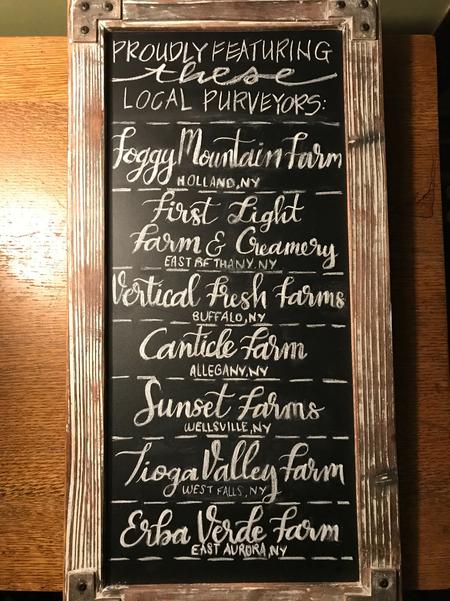 PROUDLY FEATURING
these
LOCAL PURVEYORS:
Foggy Mountain Farm
HOLLAND, NY
First Light
Farm & Creamery
EAST BETHANY, NY
Vertical Fresh Farms
BUFFALO, NY
Canticle Farm
ALLEGANY, NY
Sunset Farms
WELLSVILLE, NY
Tioga Valley Farm
WEST FALLS, NY
Erba Verde Farm
EAST AURORA, NY